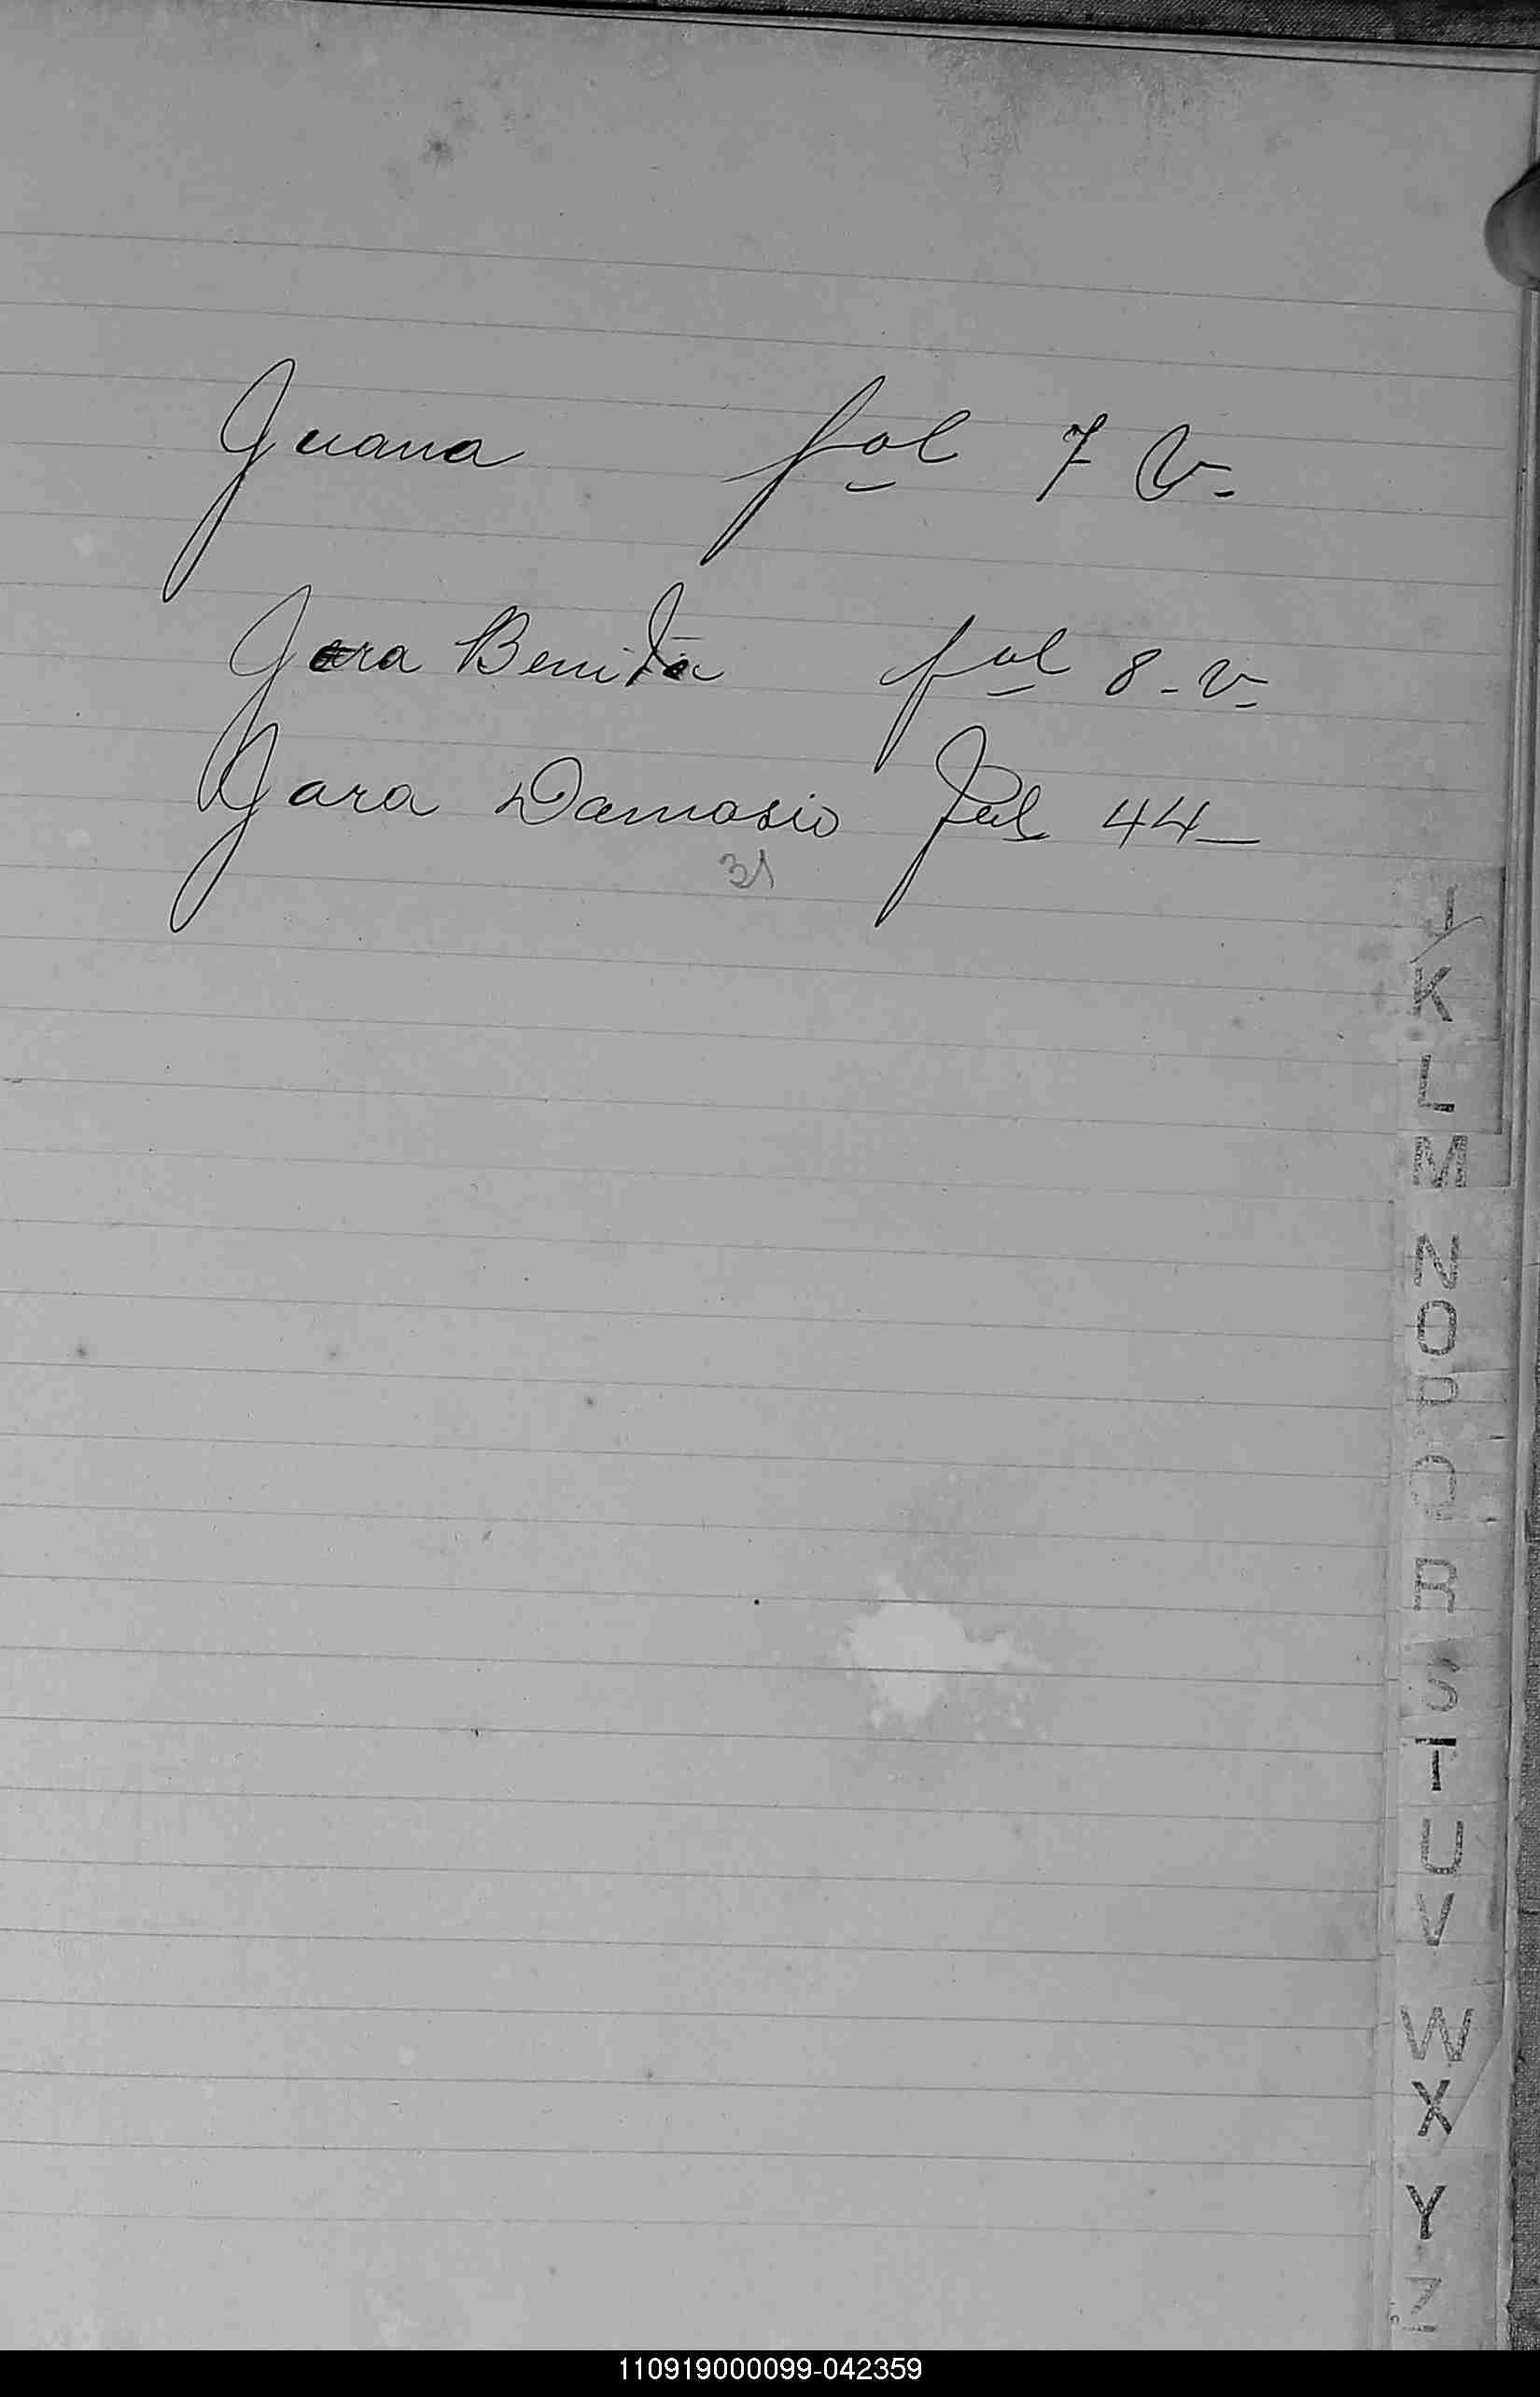 Juana fol 7 v.
Jara Benita fol 8 - v.
Jara Damasio Fol 44 -
31
J
K
L
M
N
O
P
Q
R
S
T
U
V
W
X
Y
Z
110919000099-042359